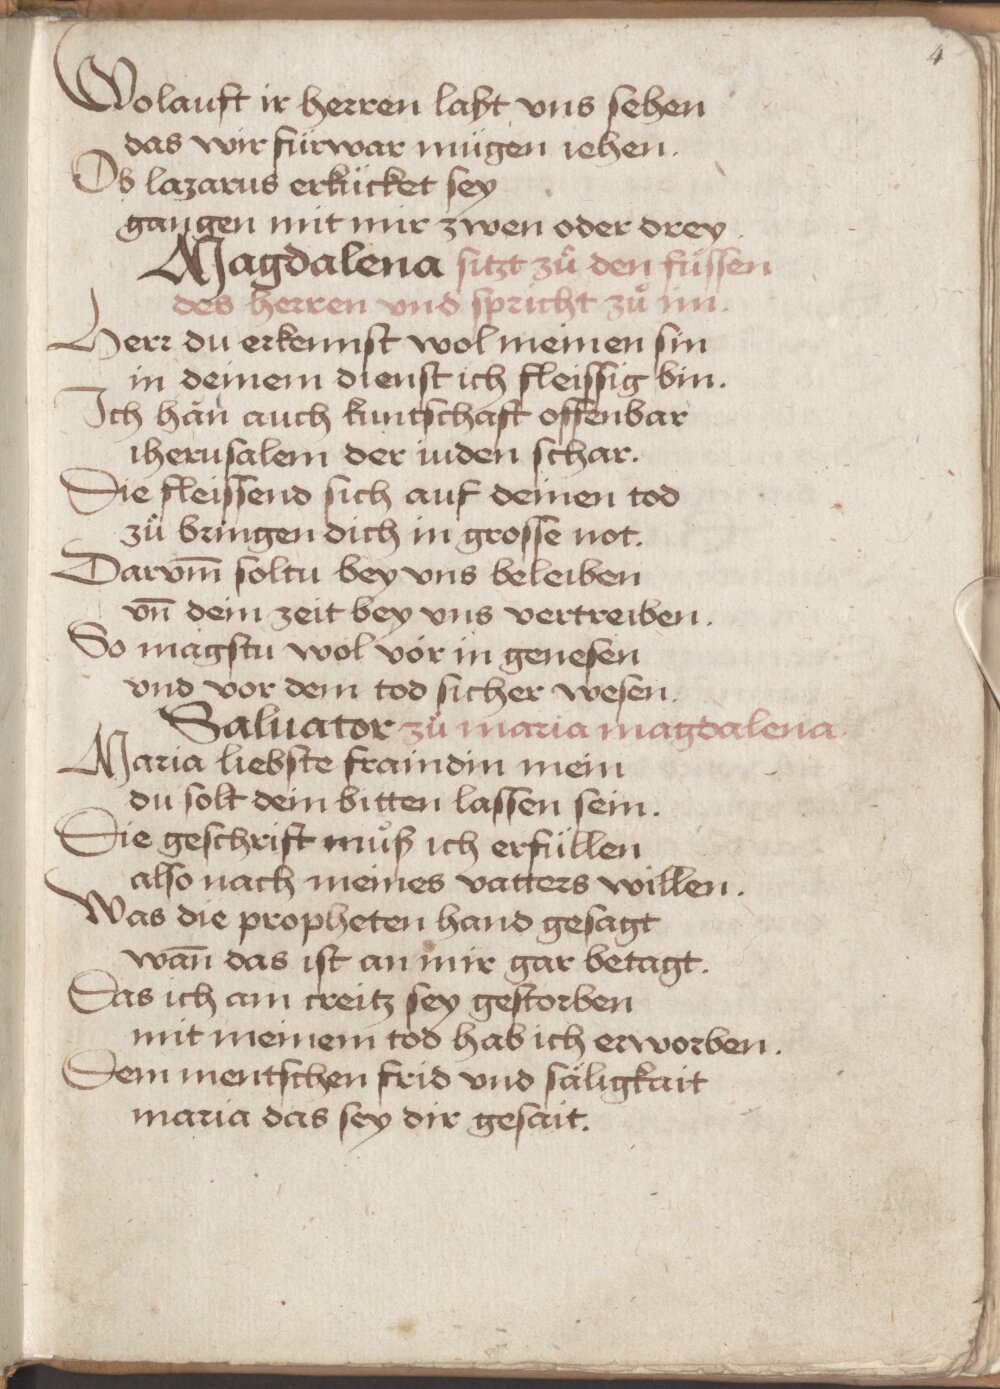 4
Wolauft ir herren laßt vns sehen
das wir fürwar mügen iehen.
Ob lazarus erkücket sey
gangen mit mir zwen oder drey.
Magdalena sitzt zů den füssen
des herren vnd spricht zů im.
Herr du erkennst wol meinen sin
in deinem dienst ich fleissig bin.
Ich hän auch kuntschaft offenbar
iherusalem der iuden schar.
Die fleissend sich auf deinen tod
zů bringen dich in grosse not.
Darvm̄ soltu bey vns beleiben
vn̄ dein zeit bey vns vertreiben.
So magstu wol vor in genesen
vnd vor dem tod sicher wesen.
Saluator zů maria magdalena
Maria liebste fraindin mein
du solt dein bitten lassen sein.
Die geschrift můß ich erfüllen
also nach meines vatters willen.
Was die propheten hand gesagt
wān das ist an mir gar betagt.
Das ich am creitz sey gestorben
mit meinem tod hab ich erworben.
Dem mentschen frid vnd säligkait
maria das sey dir gesait.